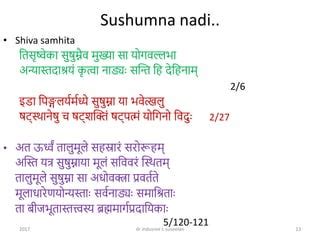 Sushumna nadi..
• Shiva samhita
तिसृष्वेका सुषुम्नेव मुख्या सा योगवल्लभा
अन्यास्तदाश्रयं कृत्वा नाड्यः सन्ति हि देहिनाम्
2/6
इडा पिङ्गलयर्मध्ये सुषुम्ना या भवेत्खलु
षट्स्थानेषु च षट्शक्तिं षट्पत्मं योगिनो विदुः 2/27
• अत ऊर्ध्वं तालुमूले सहस्रारं सरोरूहम्
अस्ति यत्र सुषुम्नाया मूलं सविवरं स्थितम्
तालुमूले सुषुम्ना सा अधोवक्त्रा प्रवर्तते
मूलाधारेणयोन्यस्ताः सर्वनाड्यः समाश्रिताः
ता बीजभूतास्तत्त्वस्य ब्रह्ममार्गप्रदायिकाः
5/120-121
2017 dr indusree t sureesan 13